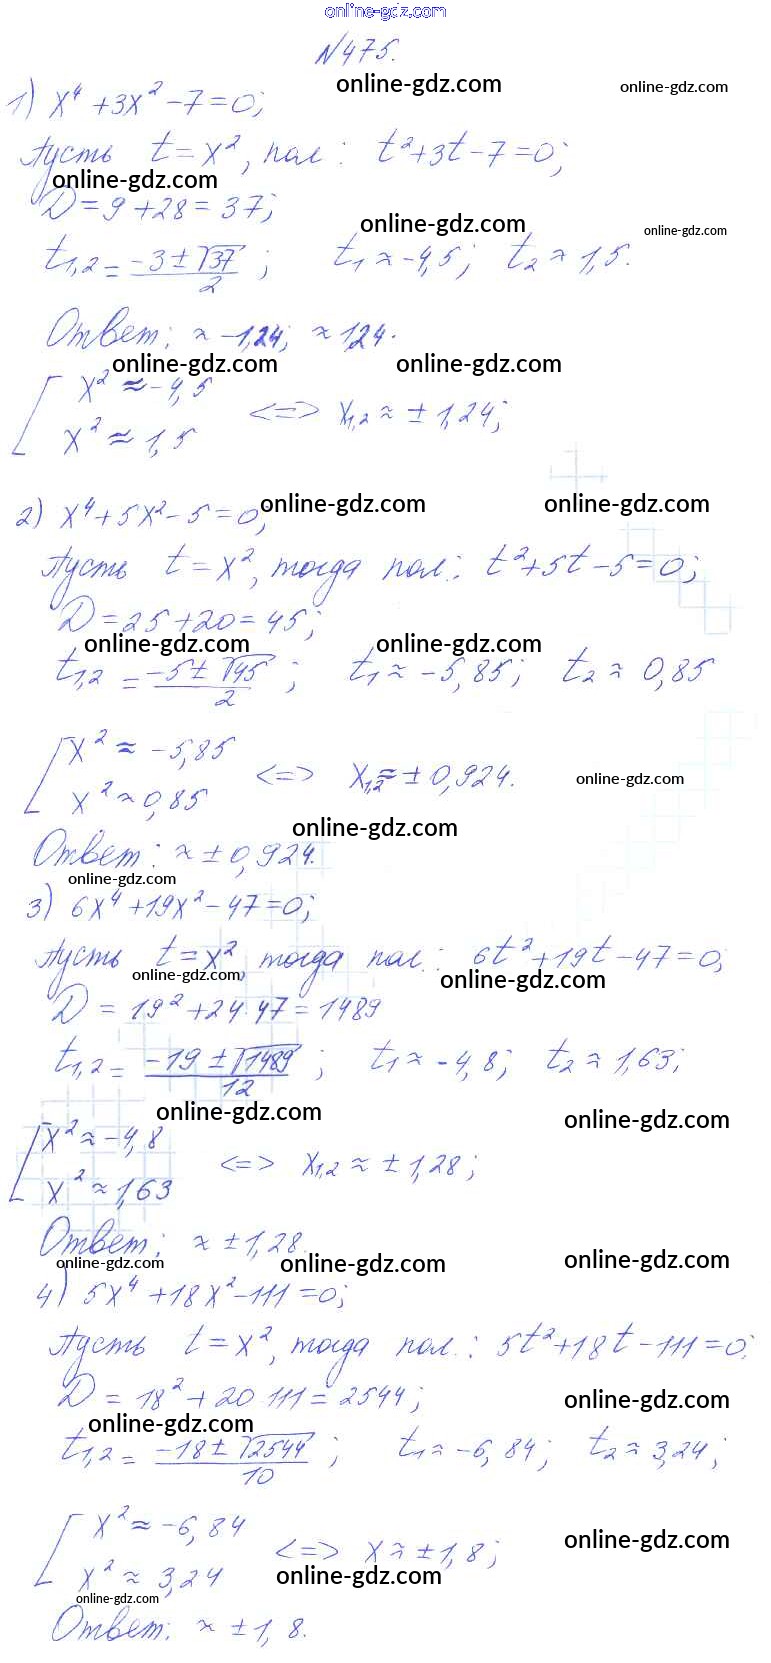 online-gdz.com
№475.
online-gdz.com online-gdz.com
1) x⁴+3x²-7=0;
Пусть t=x², пол: t²+3t-7=0;
online-gdz.com
D=9+28=37;
online-gdz.com online-gdz.com
t₁,₂ = (-3±√37)/2 ; t₁≈-4,5; t₂≈1,5.
Ответ: ≈-1,24; ≈1,24.
online-gdz.com online-gdz.com
[ x²≈-4,5
x²≈1,5 <=> x₁,₂≈±1,24;
2) x⁴+5x²-5=0;
online-gdz.com online-gdz.com
Пусть t=x², тогда пол.: t²+5t-5=0;
D=25+20=45;
online-gdz.com online-gdz.com
t₁,₂ = (-5±√45)/2 ; t₁≈-5,85; t₂≈0,85
[ x²≈-5,85
x²≈0,85 <=> x₁,₂≈±0,924.
online-gdz.com
online-gdz.com
Ответ: ≈±0,924.
online-gdz.com
3) 6x⁴+19x²-47=0;
Пусть t=x², тогда пол.: 6t²+19t-47=0;
online-gdz.com online-gdz.com
D=19²+24·47=1489
t₁,₂ = (-19±√1489)/12 ; t₁≈-4,8; t₂≈1,63;
online-gdz.com online-gdz.com
[ x²≈-4,8
x²≈1,63 <=> x₁,₂≈±1,28;
Ответ: ≈±1,28.
online-gdz.com online-gdz.com online-gdz.com
4) 5x⁴+18x²-111=0;
Пусть t=x², тогда пол.: 5t²+18t-111=0;
D=18²+20·111=2544;
online-gdz.com online-gdz.com
t₁,₂ = (-18±√2544)/10 ; t₁≈-6,84; t₂≈3,24;
[ x²≈-6,84
x²≈3,24 <=> x≈±1,8;
online-gdz.com
online-gdz.com
online-gdz.com
Ответ: ≈±1,8.